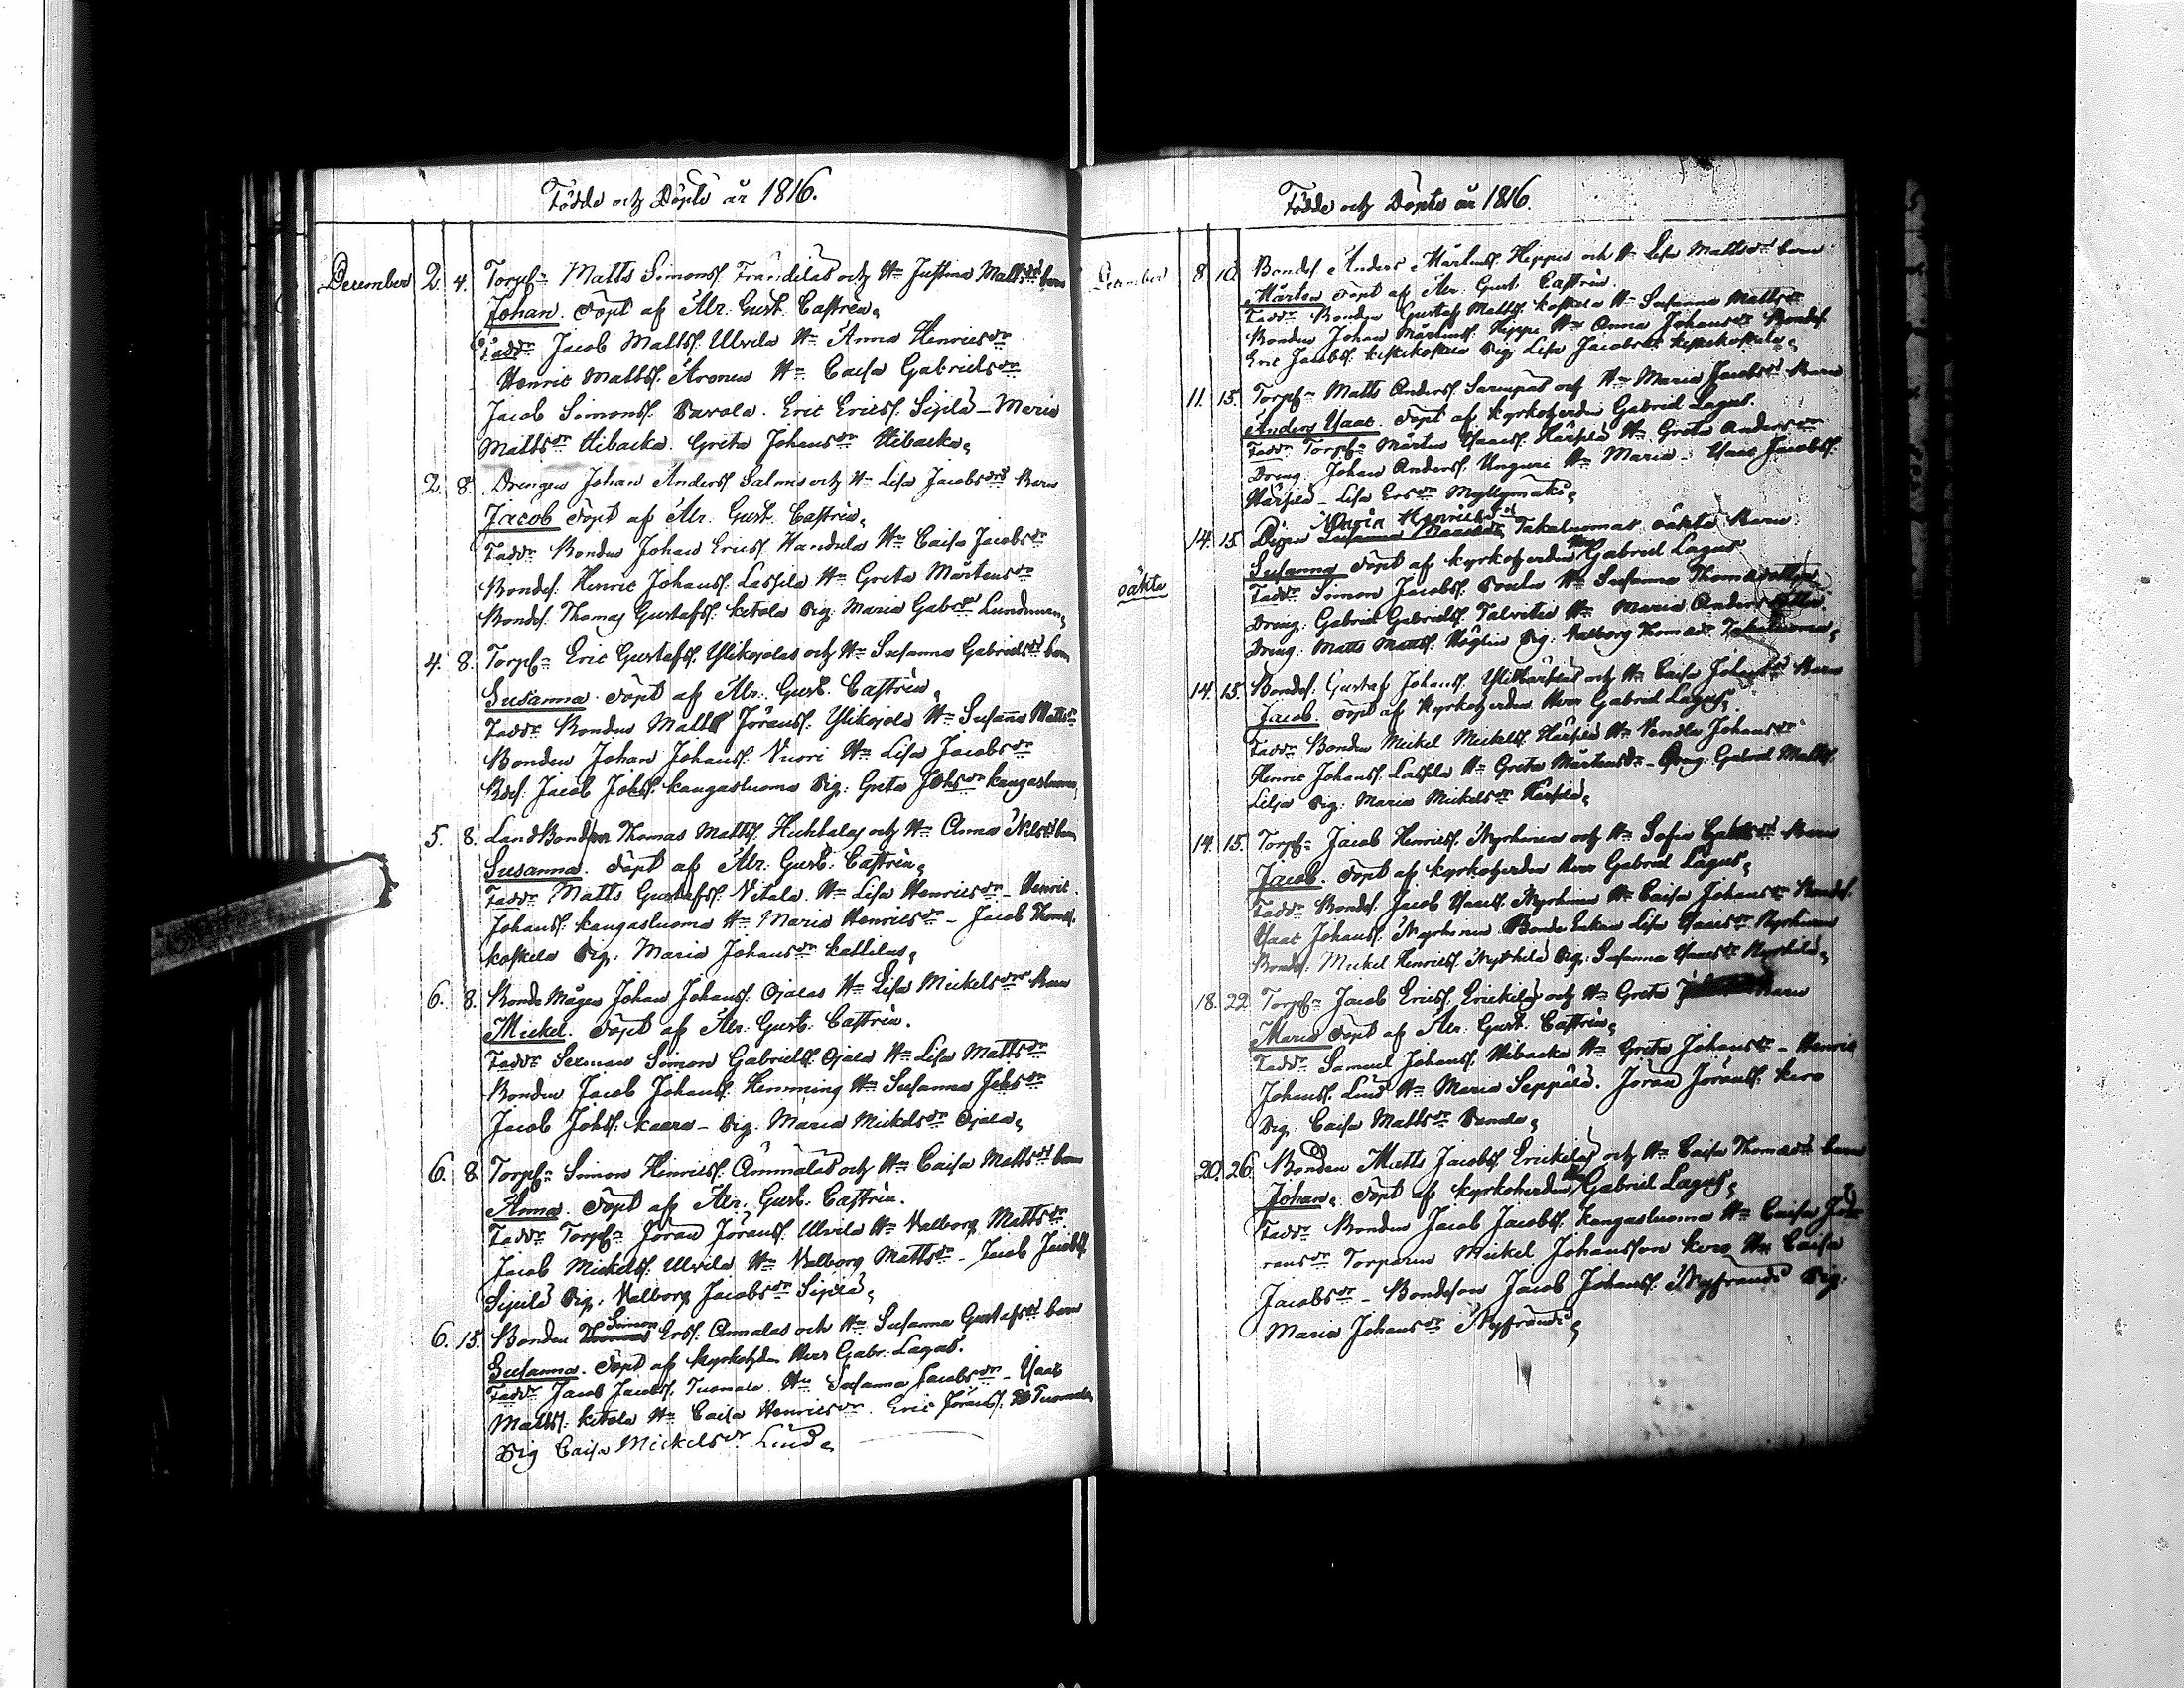 Födde och Döpte år 1816.
December 2. 4. Torp:n Matts Simonss. Frändilas och H:u Justina Mattsdrs barn
Johan. döpt af Alr. Gust. Castrén.
Fadd:r Jacob Mattss. Ulvila H:u Anna Henricsdr
Henric Mattss. Aronen H:u Caisa Gabrielsdr
Jacob Simonss. Pavola. Eric Ericss. Sipilä - Maria
Mattsdr Hibacka. Greta Johansdr Hibacka.
2. 8. Drengen Johan Anderss Salmis och H:u Lisa Jacobsdrs Barn
Jacob döpt af Alr. Gust. Castrén.
Fadd:r Bonden Johan Ericss. Handula H:u Caisa Jacobsdr
Bondes. Henric Johanss. Lassila H:u Greta Mårtensdr
Bondes. Thomas Gustafss. Ketola Pig. Maria Gabrdr Lundman.
4. 8. Torp:n Eric Gustafss. Ylikojolas och H:u Susanna Gabrielsdrs barn
Susanna. döpt af Alr. Gust. Castrén.
Fadd:r Bonden Matts Jöranss. Ylikojola H:u Susanna Mattsdr
Bonden Johan Johanss. Vuori H:u Lisa Jacobsdr
Bdes. Jacob Johss. Kangasluoma Pig: Greta Johsdr Kangasluoma
5. 8. Landbonden Thomas Mattss. Huhtalas och H:u Anna Nilsdrs barn
Susanna. döpt af Alr. Gust. Castrén.
Fadd:r Matts Gustafss. Vitala. H:u Lisa Henricsdr - Henric
Johanss. Kangasluoma H:u Maria Henricsdr - Jacob Thomss.
Koskela Pig. Maria Johansdr Kattilas.
6. 8. Bonde Mågen Johan Johanss. Ojalas H:u Lisa Mickelsdrs Barn
Mickel. döpt af Alr. Gust. Castrén.
Fadd:r Sexman Simon Gabrielss. Ojala H:u Lisa Mattsdr
Bonden Jacob Johanss. Hemming H:u Susanna Johsdr
Jacob Johss. Kaara - Pig. Maria Mickelsdr Ojala.
6. 8. Torp:n Simon Hinricss. Ammälas och H:u Caisa Mattsdrs barn
Anna. döpt af Alr. Gust. Castrén.
Fadd:r Torp:n Jöran Jöranss. Ulvila H:u Valborg Mattsdr.
Jacob Mickelss. Ulvila H:u Valborg Mattsdr - Jacob Jacobss.
Sipilä Pig. Valborg Jacobsdr Sipilä.
Simon
6. 15. Bonden Thomas Erss. Annalas och H:u Susanna Gustafsdrs barn
Susanna. döpt af Kyrkohden Herr Gabr. Lagus.
Fadd:r Jacob Jacobss. Tuomala. H:u Susanna Jacobsdr - Ysac
Mattss. Ketola H:u Caisa Henricsdr. Eric Jöranss. Tuomala
Pig Caisa Mickelsdr Lind.
Födde och Döpte år 1816.
December 8. 10. Bondes. Anders Mårtenss. Heppis och H:u Lisa Mattsdrs barn
Mårten döpt af Alr. Gust. Castrén.
Fadd:r Bonden Gustaf Mattss. Koskela H:u Susanna Mattsdr
Bonden Johan Mårtenss. Heppi H:u Anna Johansdr Bondes.
Eric Jacobss. Keskikoskela Pig. Lisa Jacobsdr Keskikoskela.
11. 15. Torp:n Matts Anderss. Sarinpäs och H:u Maria Jacobsdrs Barn
Anders Ysaac. döpt af Kyrkoherden Gabriel Lagus.
Fadd:r Torp:n Mårten Ysaacss. Härsilä H:u Greta Andersdr
Dreng. Johan Anderss. Unguri H:u Maria - Ysaac Jacobss.
Härsilä - Lisa Ersdr Myllymäki.
Maria Henricsdr
14. 15. Pigan Susanna Takaluomas oäkta Barn
Susanna döpt af Kyrkoherden Herr Gabriel Lagus
oäkta Fadd:r Simon Jacobss. H:u Susanna Thomasdotter
Dreng. Gabriel Gabrielss. Talvitie H:u Maria Anders
Dreng. Matts Mattss. Höglin Pig. Valborg Thomasdr Takaluoma.
14. 15. Bondes: Gustaf Johanss. och H:u Caisa Johansdrs Barn
Jacob. döpt af Kyrkoherden Herr Gabriel Lagus.
Fadd:r Bonden Mickel Mickelss. Härsilä H:u Vendla Johansdr
Henric Johanss. Lassila H:u Greta Mårtensdr - Dreng. Gabriel Mattss.
Lilja Pig. Maria Mickelsdr Härsilä.
14. 15. Torp:n Jacob Henricss. Myrhinen och H:u Sofia Barn
Jacob. döpt af Kyrkoherden Herr Gabriel Lagus.
Fadd:r Bondes. Jacob Ysaacss. Myrhinen H:u Caisa Johansdr Bondes.
Ysaac Johanss. Myrhinen Bonde Enkan Lisa Ysaacsdr Myrhinen
Bondes: Mickel Henricss. Pig: Susanna Ysaacsdr
18. 22. Torp:n Jacob Ericss. Erickilas och H:u Greta Barn
Maria döpt af Alr. Gust. Castrén.
Fadd:r Samuel Johanss. Hibacka H:u Greta Johansdr - Henric
Johanss. Lind H:u Maria Seppälä. Jöran Jöranss. Kero
Pig. Caisa Mattsdr
20. 26. Bonden Matts Jacobss. Erickilas och H:u Caisa Thomasdrs barn
Johan. döpt af Kyrkoherden Herr Gabriel Lagus.
Fadd:r Bonden Jacob Jacobss. Kangasluoma H:u Caisa Jö-
ransdr Torparen Mickel Johansson Kero H:u Caisa
Jacobsdr - Bondeson Jacob Johanss. Nyfrandi Pig.
Maria Johansdr Nyfrandi.